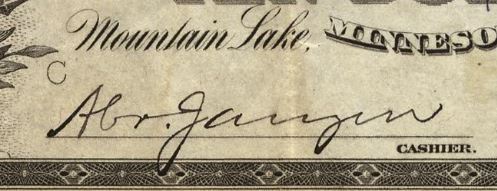 Mountain Lake, MINNESO
C
Abr. Janzen
CASHIER.